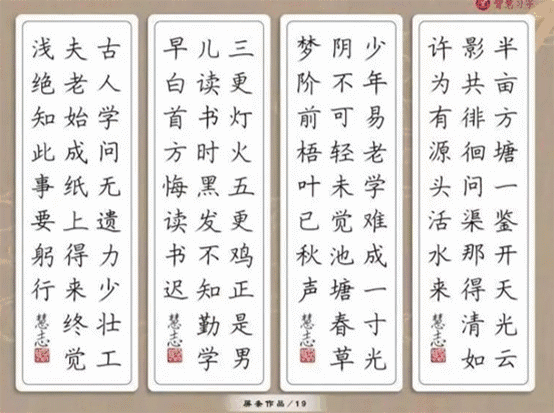 半亩方塘一鉴开天光云
影共徘徊问渠那得清如
许为有源头活水来
慧志
少年易老学难成一寸光
阴不可轻未觉池塘春草
梦阶前梧叶已秋声
慧志
三更灯火五更鸡正是男
儿读书时黑发不知勤学
早白首方悔读书迟
慧志
古人学问无遗力少壮工
夫老始成纸上得来终觉
浅绝知此事要躬行
慧志
屏条作品/19